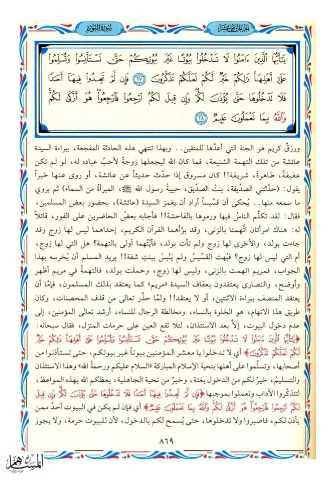 يَٰٓأَيُّهَا الَّذِينَ ءَامَنُوا لَا تَدْخُلُوا بُيُوتًا غَيْرَ بُيُوتِكُمْ حَتَّى تَسْتَأْنِسُوا وَتُسَلِّمُوا
عَلَىٰ أَهْلِهَا ذَٰلِكُمْ خَيْرٌ لَّكُمْ لَعَلَّكُمْ تَذَكَّرُونَ ﴿٢٧﴾ فَإِن لَّمْ تَجِدُوا فِيهَا أَحَدًا
فَلَا تَدْخُلُوهَا حَتَّىٰ يُؤْذَنَ لَكُمْ وَإِن قِيلَ لَكُمُ ارْجِعُوا فَارْجِعُوا هُوَ أَزْكَىٰ لَكُمْ
وَاللَّهُ بِمَا تَعْمَلُونَ عَلِيمٌ ﴿٢٨﴾
ورزقٌ كريم هو الجنة التي أعدَّها للمتقين.. وبهذا تنتهي هذه الحادثة المفجعة، ببراءة السيدة
عائشة من تلك التهمة الشنيعة، فما كان الله ليجعلها زوجةً لأحبِّ عباده له، لو لم تكن
عفيفةً، طاهرةً، شريفة!! كان مسروق إذا حدَّث حديثاً عن عائشة، أو روى عنها خبراً
يقول: (حدَّثتني الصدِّيقة، بنتُ الصدِّيق، حبيبةُ رسول الله ﷺ، المبرأةُ من السماء) ثم يروي
ما سمعه منها.. يُحكى أن قسيساً أراد أن يغمز السيدة (عائشة)، بحضور بعض المسلمين،
فقال: لقد تكلَّم الناسُ فيها ورموها بالفاحشة!! فأجابه بعضُ الحاضرين على الفور، قائلاً
له: هناك امرأتان اتُّهمتا بالزنى، وقد برَّأهما القرآن الكريم، إحداهما ليس لها زوج وقد
جاءت بولد، والأخرى لها زوج ولم تأت بولد، فأيَّتُهما أولى بالتهمة؟ هل التي لها زوج،
أم التي ليس لها زوج؟ فبُهت القسِّيسُ ولم يَنْبِس ببنت شفة!! يريد المسلم أن يُخرسه بهذا
الجواب، فمريم اتهمت بالزنى، وليس لها زوج، وحملت بولد، فالتهمةُ في مريم أظهر
وأوضح، والنصارى يعتقدون بعفاف السيدة «مريم» كما يعتقد بذلك المسلمون، فإمَّا أن
يعتقد المنصف ببراءة الاثنتين، أو لا يعتقد!! ولمَّا حذَّر تعالى من قذف المحصنات، وكان
طريق هذا الاتهام، هو الخلوة بالنساء، ومخالطة الرجال للنساء، أرشد تعالى المؤمنين، إلى
عدم دخول البيوت، إلاَّ بعد الاستئذان، لئلا تقع العين على حرمات المنزل، فقال سبحانه:
﴿يَٰٓأَيُّهَا الَّذِينَ ءَامَنُوا لَا تَدْخُلُوا بُيُوتًا غَيْرَ بُيُوتِكُمْ حَتَّى تَسْتَأْنِسُوا وَتُسَلِّمُوا عَلَىٰ أَهْلِهَا ذَٰلِكُمْ خَيْرٌ
لَّكُمْ لَعَلَّكُمْ تَذَكَّرُونَ﴾ أي لا تدخلوا يا معشر المؤمنين بيوتاً غير بيوتكم، حتى تستأذنوا من
أصحابها، وتسلِّموا على أهلها بتحية الإسلام المباركة «السلام عليكم ورحمة الله» وهذا الاستئذان
والتسليمُ، خيرٌ لكم من الدخول بغتة، وخيرٌ من تحية الجاهلية، يعظكم الله بهذه المواعظ،
لتتذكَّروا الآداب وتعملوا بموجبها ﴿فَإِن لَّمْ تَجِدُوا فِيهَا أَحَدًا فَلَا تَدْخُلُوهَا حَتَّىٰ يُؤْذَنَ لَكُمْ وَإِن قِيلَ
لَكُمُ ارْجِعُوا فَارْجِعُوا هُوَ أَزْكَىٰ لَكُمْ وَاللَّهُ بِمَا تَعْمَلُونَ عَلِيمٌ﴾ أي فإن لم يكن في البيوت أحدٌ ممن
يأذن لكم، فاصبروا ولا تدخلوها، حتى يُسمح لكم بالدخول، لأن للبيوت حرمة، ولا يجوز
٨٦٩